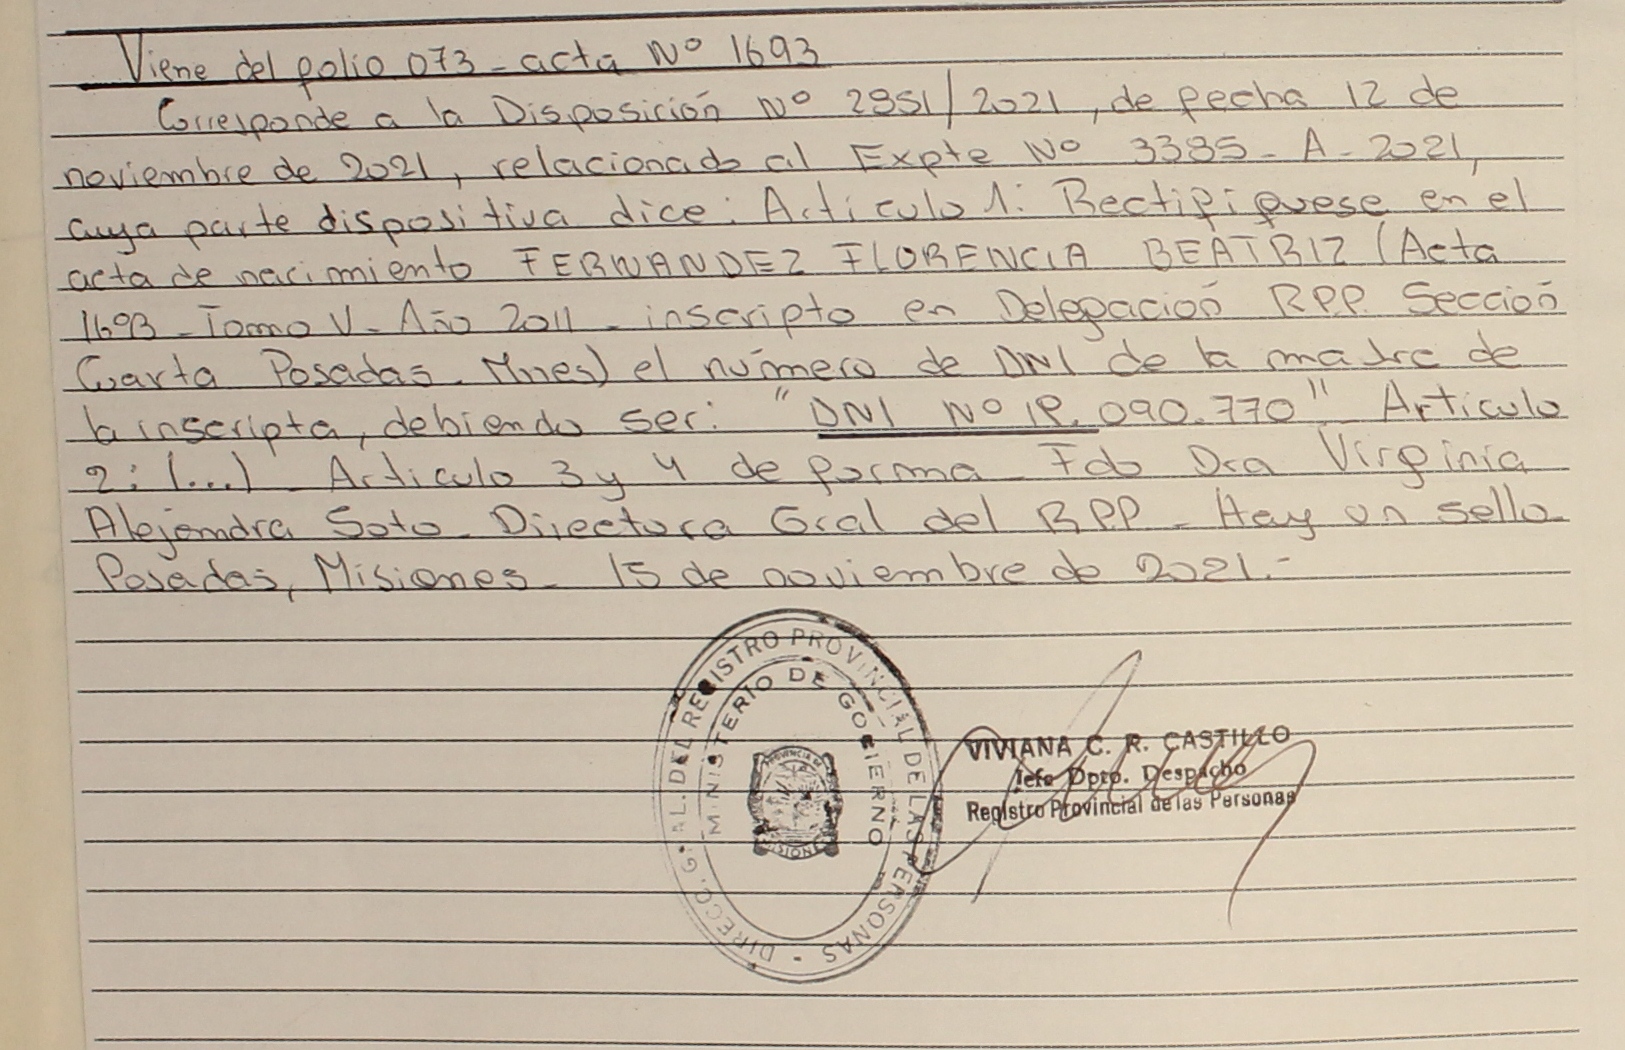 Viene del folio 073 - acta Nº 1693
Corresponde a la Disposición Nº 2951/2021, de fecha 12 de
noviembre de 2021, relacionado al Expte Nº 3385 - A - 2021,
cuya parte dispositiva dice: Articulo 1: Rectifiquese en el
acta de nacimiento FERNANDEZ FLORENCIA BEATRIZ (Acta
1693 - Tomo V - Año 2011 - inscripto en Delegación RPP. Sección
Cuarta Posadas. Mnes) el número de DNI de la madre de
la inscripta, debiendo ser: "DNI Nº 18.090.770" Articulo
2: (...) Articulo 3 y 4 de forma - Fdo Dra Virginia
Alejandra Soto - Directora Gral del RPP - Hay un sello
Posadas, Misiones - 15 de noviembre de 2021.-
DIRECC. G'AL. DEL REGISTRO PROVINCIAL DE LAS PERSONAS -
MINISTERIO DE GOBIERNO
PROVINCIA DE
MISIONES
VIVIANA C. R. CASTILLO
Jefe Dpto. Despacho
Registro Provincial de las Personas